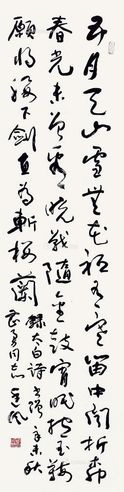 五月天山雪無花祗有寒笛中聞折柳
春光未曾看曉戰隨金鼓宵眠抱玉鞍
願將腰下劍直為斬樓蘭
錄太白詩
同志